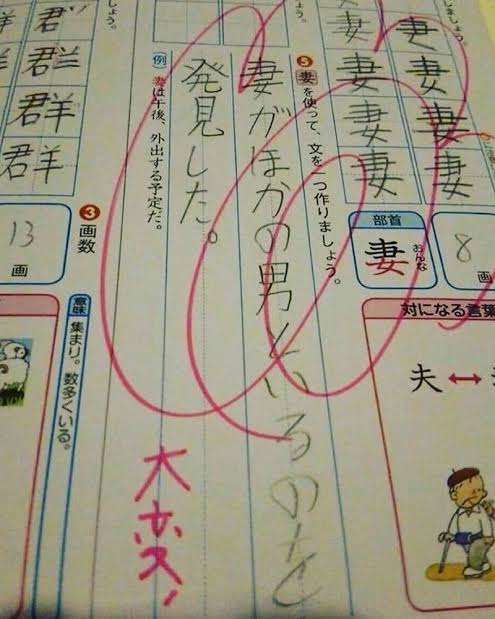 ましょう。
妻妻妻妻
妻妻妻妻
8画
部首
妻
おんな
対になる言葉
夫↔
❺妻を使って、文を一つ作りましょう。
妻がほかの男といるのを
発見した。
(例)妻は午後、外出する予定だ。
ょう。
ましょう。
群群群群
❸画数
13画
意味 集まり。数多くいる。